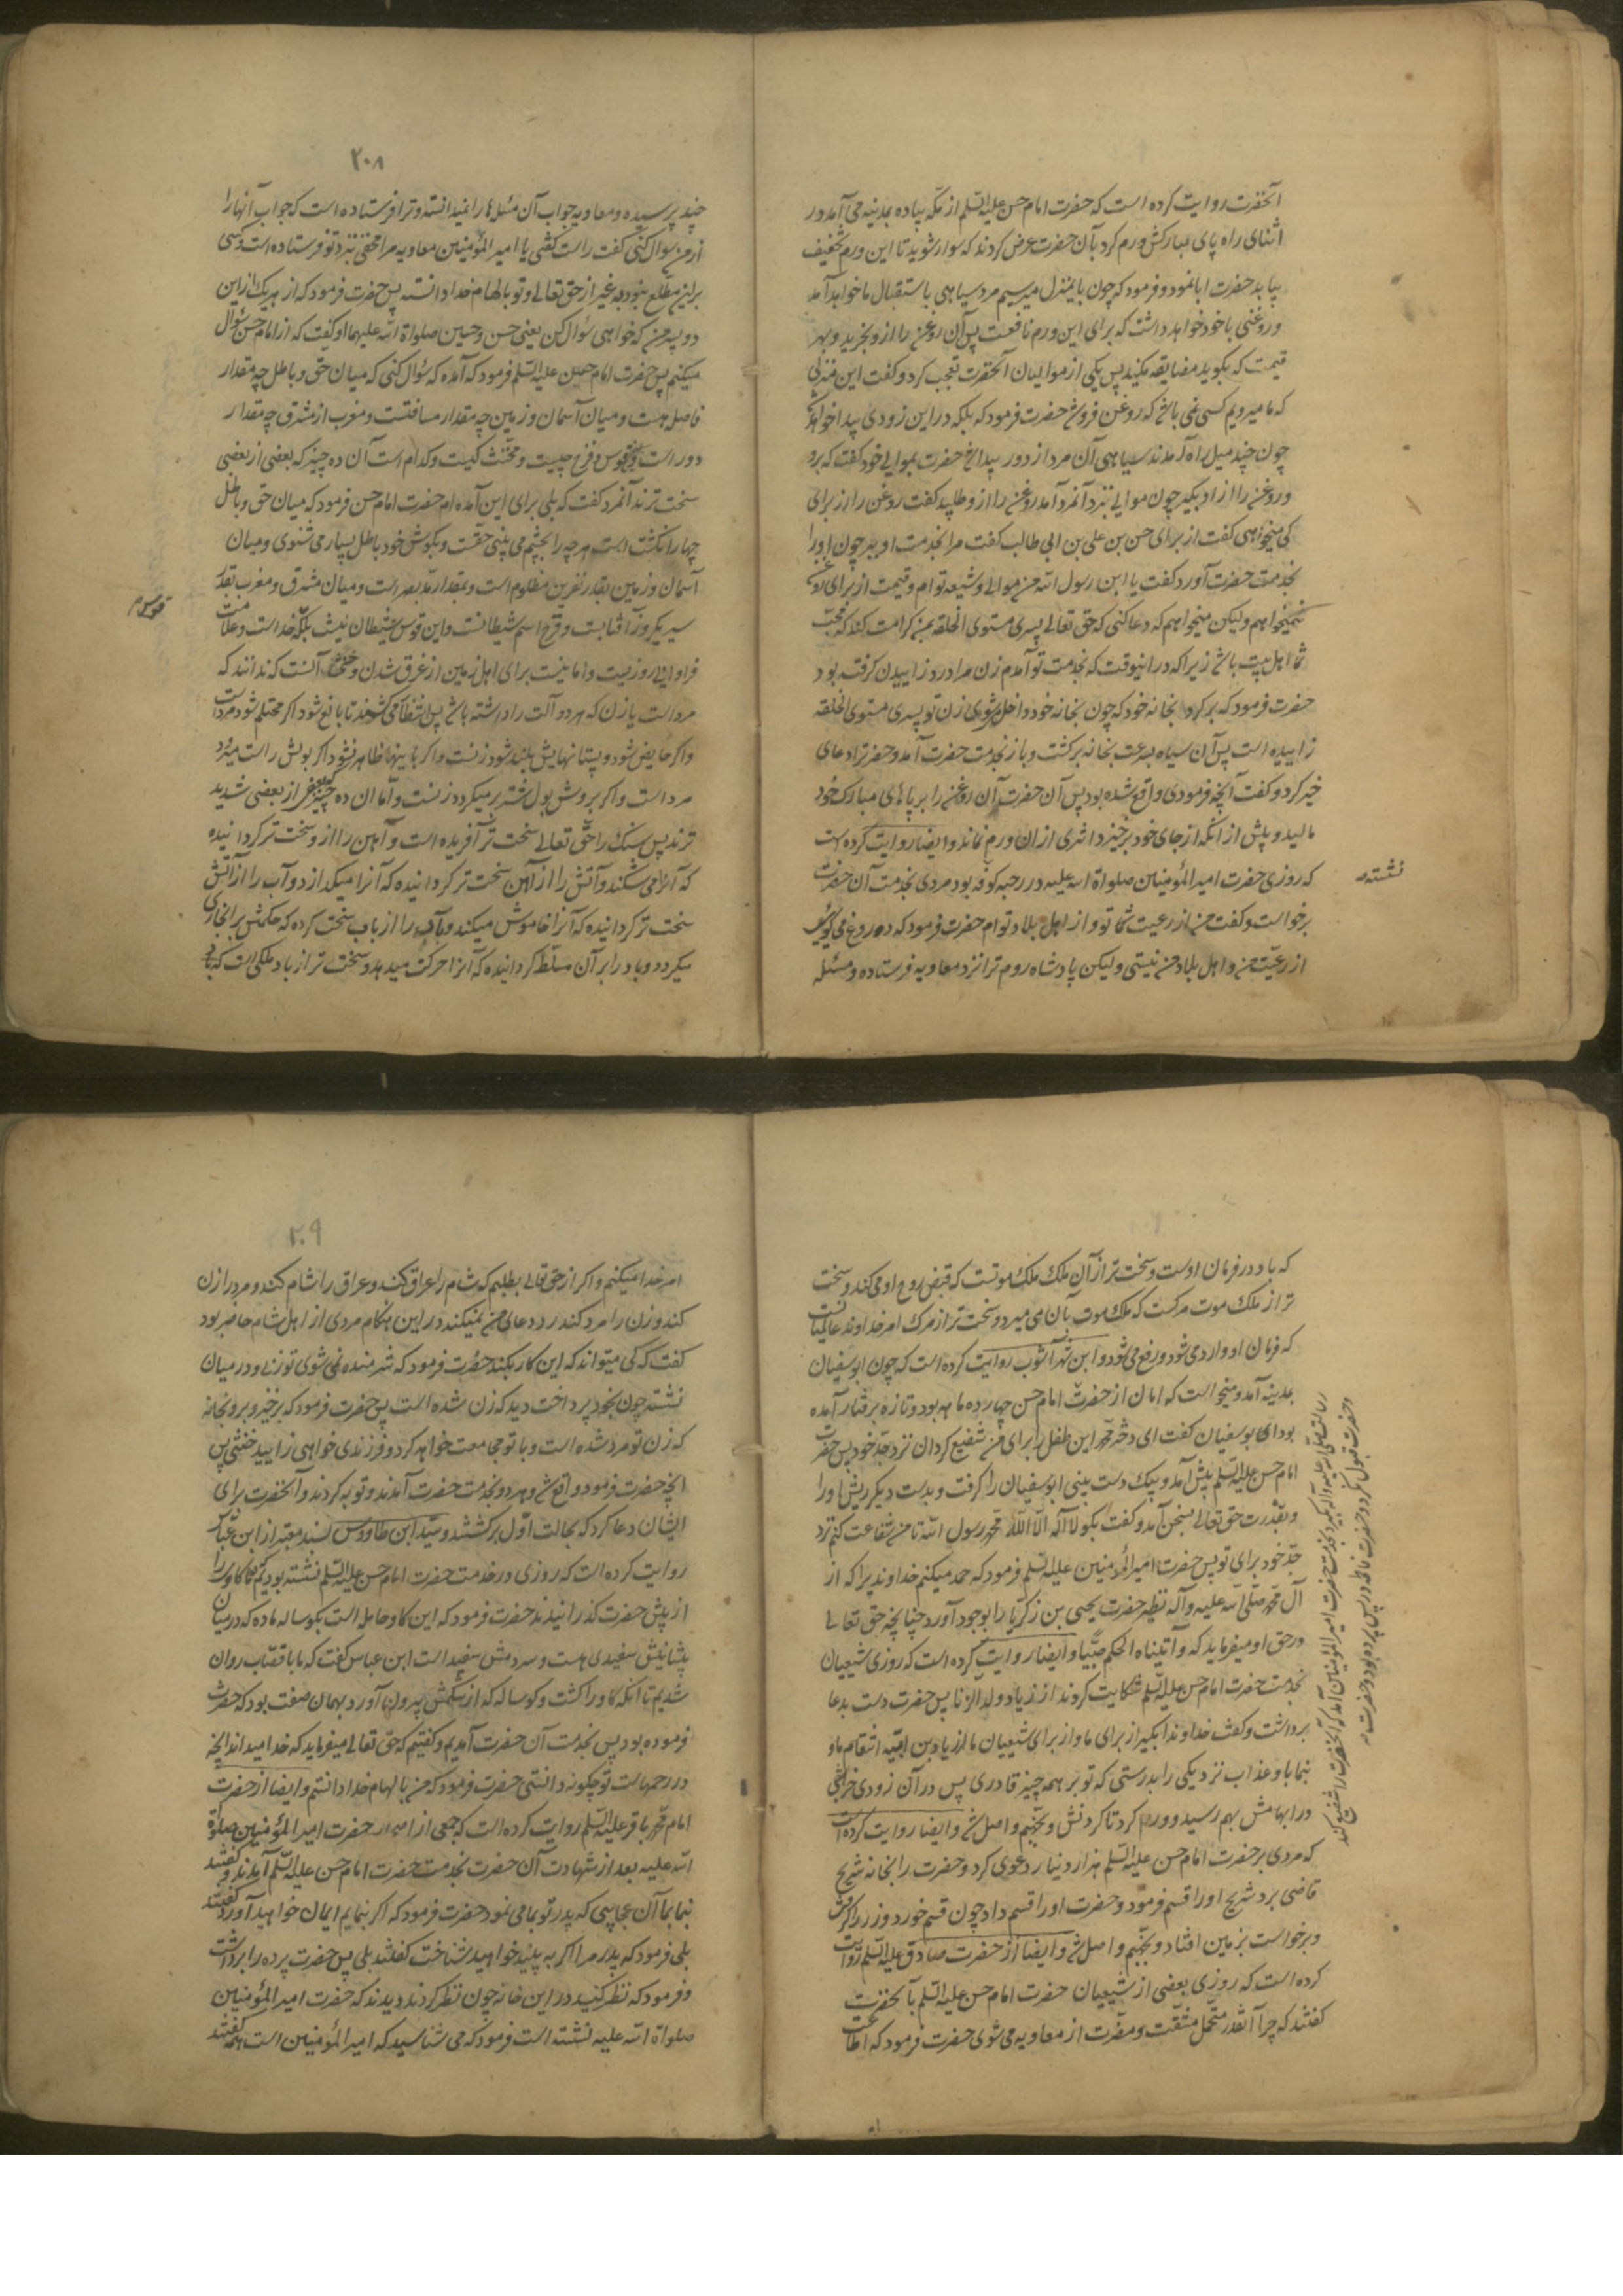 آنحضرت روایت کرده است که حضرت امام حسن علیه السلم از مکه پیاده بمدینه می آمد در
اثنای راه پای مبارکش ورم کرد بآن حضرت عرض کردند که سوار شوید تا این ورم تخفیف
بیابد حضرت ابا نمود و فرمود که چون باینمنزل میرسیم مرد سیاهی باستقبال ما خواهد آمد
و روغنی با خود خواهد داشت که برای این ورم نافعست پس آن روغن را ازو بخرید و بهر
قیمت که بگوید مضایقه مکنید پس یکی از موالیان آنحضرت تعجب کرد و گفت این منزلی
که ما میرویم کسی نمی باشد که روغن فروشد حضرت فرمود که بلکه در این زودی پیدا خواهد شد
چون چند میل راه آمدند سیاهی آن مرد از دور پیدا شد حضرت بموالی خود گفت که برو
و روغن را از او بگیر چون موالی بنزد آنمرد آمد روغن را ازو طلبید گفت روغن را از برای
کی میخواهی گفت از برای حسن بن علی بن ابی طالب گفت مرا بخدمت او ببر چون او را
بخدمت حضرت آورد گفت یا ابن رسول الله من موالی و شیعه توام و قیمت از برای روغن
نمیخواهم ولیکن میخواهم که دعا کنی که حق تعالی پسری مستوی الخلقه بمن کرامت کند که محب
شما اهل بیت باشد زیرا که در اینوقت که بخدمت تو آمدم زن مرا درد زاییدن گرفته بود
حضرت فرمود که برگرد بخانه خود که چون بخانه خود داخل میشوی زن تو پسری مستوی الخلقه
زاییده است پس آن سیاه بسرعت بخانه برگشت و باز بخدمت حضرت آمد و حضرترا دعای
خیر کرد و گفت آنچه فرمودی واقع شده بود پس آن حضرت آن روغن را بر پاهای مبارک خود
مالید و پیش از آنکه از جای خود برخیزد اثری از ان ورم نماند و ایضا روایت کرده است
که روزی حضرت امیر المؤمنین صلواة الله علیه در رحبه کوفه بود مردی بخدمت آن حضرت
نشسته
برخواست و گفت من از رعیت شما تو و از اهل بلاد توام حضرت فرمود که دروغ می گویی
از رعیت من و اهل بلاد من نیستی ولیکن پادشاه روم ترا نزد معاویه فرستاده و مسئله
۲۰۸
چند پرسیده و معاویه جواب آن مسئله ها را نمیدانسته و ترا فرستاده است که جواب آنها را
از من سوال کنی گفت راست گفتی یا امیر المؤمنین معاویه مرا مخفی بنزد تو فرستاده است و کسی
براین مطلع نبود به غیر از حق تعالی و تو بالهام خدا دانسته پس حضرت فرمود که از هر یک از این
دو پسر من که خواهی سؤال کن یعنی حسن و حسین صلواة الله علیهما او گفت که از امام حسن سؤال
میکنم پس حضرت امام حسن علیه السلم فرمود که آمده که سؤال کنی که میان حق و باطل چه مقدار
فاصله هست و میان آسمان و زمین چه مقدار مسافتست و مغرب از مشرق چه مقدار
دور است و قوس و قزح چیست و مخنث کیست و کدام است آن ده چیز که بعضی از بعضی
سخت ترند آنمرد گفت که بلی برای این آمده ام حضرت امام حسن فرمود که میان حق و باطل
چهار انگشت است هر چه را بچشم می بینی حقست و بگوش خود باطل بسیار می شنوی و میان
آسمان و زمین بقدر نفرین مظلوم است و بمقدار مد بصر است و میان مشرق و مغرب بقدر
سیر یکروز آفتابست و قزح اسم شیطانست و این قوس شیطان نیست بلکه قوس خداست و علامت
فراوانی روزیست و امانیست برای اهل زمین از غرق شدن و خنثی آنست که ندانند که
مرد است یا زن که هر دو آلت را داشته باشد پس انتظار می کشند تا بالغ شود اگر محتلم شود مرد است
و اگر حایض شود و پستانهایش بلند شود زنست و اگر باینها ظاهر نشود اگر بولش راست میرود
مرد است و اگر بروش بول شتر بر میگردد زنست و اما ان ده چیز که بعضی از بعضی شدید
ترند پس سنگ را حق تعالی سخت تر آفریده است و آهن را از و سخت تر گردانیده
که آنرا می شکند و آتش را از آهن سخت تر گردانیده که آنرا میگدازد و آب را از آتش
سخت تر گردانیده که آنرا خاموش میکند و را از باب سخت کرده که حکمش بر آن جاری
میگردد و باد را بر آن مسلط گردانیده که آنرا حرکت میدهد و سخت تر از باد ملکی است که
که باد در فرمان اوست و سخت تر از آن ملک ملک موتست که قبض روح او می کند و سخت
تر از ملک موت مرگست که ملک موت بآن می میرد و سخت تر از مرگ امر خداوند عالمیانست
که فرمان او وارد می شود و رفع می شود و ابن شهر آشوب روایت کرده است که چون ابوسفیان
بمدینه آمد و میخواست که امان از حضرت امام حسن چهارده ماهه بود و تازه برفتار آمده
بود ابوسفیان گفت ای دختر محمد این طفل را برای من شفیع گردان نزد جد خود پس حضرت
امام حسن علیه السلم پیش آمد و بیک دست بینی ابوسفیان را گرفت و بدست دیگر ریش او را
و بقدرت حق تعالی بسخن آمد و گفت بگو لا اله الا الله محمد رسول الله تا من شفاعت کنم نزد
جد خود برای تو پس حضرت امیر المؤمنین علیه السلم فرمود که حمد میکنم خداوندیرا که از
آل محمد صلی الله علیه و آله نظیر حضرت یحیی بن زکریا را بوجود آورد چنانچه حق تعالی
در حق او میفرماید که و آتیناه الحکم صبیا و ایضا روایت کرده است که روزی شیعیان
بخدمت حضرت امام حسن علیه السلم شکایت کردند از زیاد ولد الزنا پس حضرت دست بدعا
برداشت و گفت خداوندا بگیر از برای ما و از برای شیعیان ما از زیاد بن امیه انتقام ما و
بنما باو عذاب نزدیکی را بدرستی که تو بر همه چیز قادری پس در آن زودی خراجی
در ابهامش بهم رسید و ورم کرد تا گردنش و بجهنم واصل شد و ایضا روایت کرده است
که مردی بر حضرت امام حسن علیه السلم هزار دینار دعوی کرد و حضرت را بخانه شریح
قاضی برد شریح او را قسم فرمود و حضرت او را قسم داد چون قسم خورد و زر را گرفت
و برخواست بزمین افتاد و بجهنم واصل شد و ایضا از حضرت صادق علیه السلم روایت
کرده است که روزی بعضی از شیعیان حضرت امام حسن علیه السلم بآنحضرت
گفتند که چرا آنقدر متحمل مشقت و مضرت از معاویه می شوی حضرت فرمود که اطاعت
رسالت صلی الله علیه و آله بگیرد بخدمت حضرت امیر المؤمنین آمد که آنحضرت را شفیع کند
و حضرت قبول نکرد و حضرت فاطمه در پس پرده بود و حضرت
۲۰۹
امر خدا میکنم و اگر از حق تعالی بطلبم که شام را عراق کند و عراق را شام کند و مرد را زن
کند و زن را مرد کند رد دعای من نمیکند در این هنگام مردی از اهل شام حاضر بود
گفت که کی میتواند که این کار بکند حضرت فرمود که شرمنده نمی شوی تو زنی و در میان
نشسته چون بخود پرداخت دید که زن شده است پس حضرت فرمود که برخیز و برو بخانه
که زن تو مرد شده است و با تو مجامعت خواهد کرد و فرزندی خواهی زایید خنثی پس
انچه حضرت فرمود واقع شد و هر دو بخدمت حضرت آمدند و توبه کردند و آنحضرت برای
ایشان دعا کرد که بحالت اول برگشتند و سید ابن طاووس بسند معتبر از ابن عباس
روایت کرده است که روزی در خدمت حضرت امام حسن علیه السلم نشسته بودیم که گاوی را
از پیش حضرت گذرانیدند حضرت فرمود که این گاو حامله است بگوساله ماده که در میان
پیشانیش سفیدی هست و سر دمش سفید است ابن عباس گفت که ما با قصاب روان
شدیم تا آنکه گاو را کشت و گوساله که از شکمش بیرون آورد بهمان صفت بود که حضرت
فرموده بود پس بخدمت آن حضرت آمدیم و گفتیم که حق تعالی میفرماید که خدا میداند انچه
در رحمهاست تو چگونه دانستی حضرت فرمود که من بالهام خدا دانستم و ایضا از حضرت
امام محمد باقر علیه السلم روایت کرده است که جمعی از اصحاب حضرت امیر المؤمنین صلواة
الله علیه بعد از شهادت آن حضرت بخدمت حضرت امام حسن علیه السلم آمدند و گفتند
بنما بما آن عجایبی که پدر تو بما می نمود حضرت فرمود که اگر بنمایم ایمان خواهید آورد گفتند
بلی فرمود که پدر مرا اگر به بینید خواهید شناخت گفتند بلی پس حضرت پرده را برداشت
و فرمود که نظر کنید در این خانه چون نظر کردند دیدند که حضرت امیر المؤمنین
صلواة الله علیه نشسته است فرمود که می شناسید که امیر المؤمنین است همه گفتند